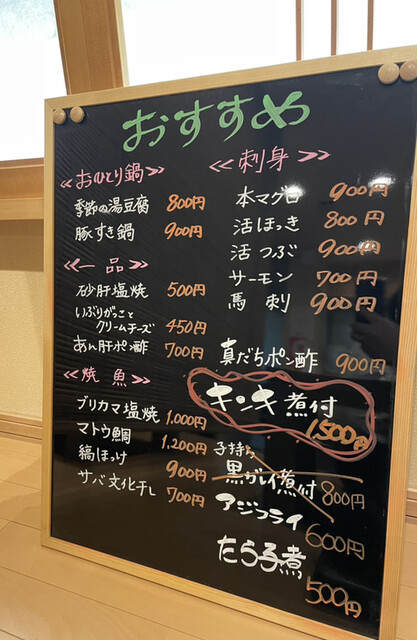 おすすめ
≪おひとり鍋≫
季節の湯豆腐 800円
豚すき鍋 900円
≪一品≫
砂肝塩焼 500円
いぶりがっこと
クリームチーズ 450円
あん肝ポン酢 700円
≪焼魚≫
ブリカマ塩焼 1,000円
マトウ鯛 1,200円
縞ほっけ 900円
サバ文化干し 700円
≪刺身≫
本マグロ 900円
活ほっき 800円
活つぶ 900円
サーモン 700円
馬刺 900円
真だちポン酢 900円
キンキ煮付
1,500円
子持ち
黒ガレイ煮付 800円
アジフライ 600円
たら子煮
500円